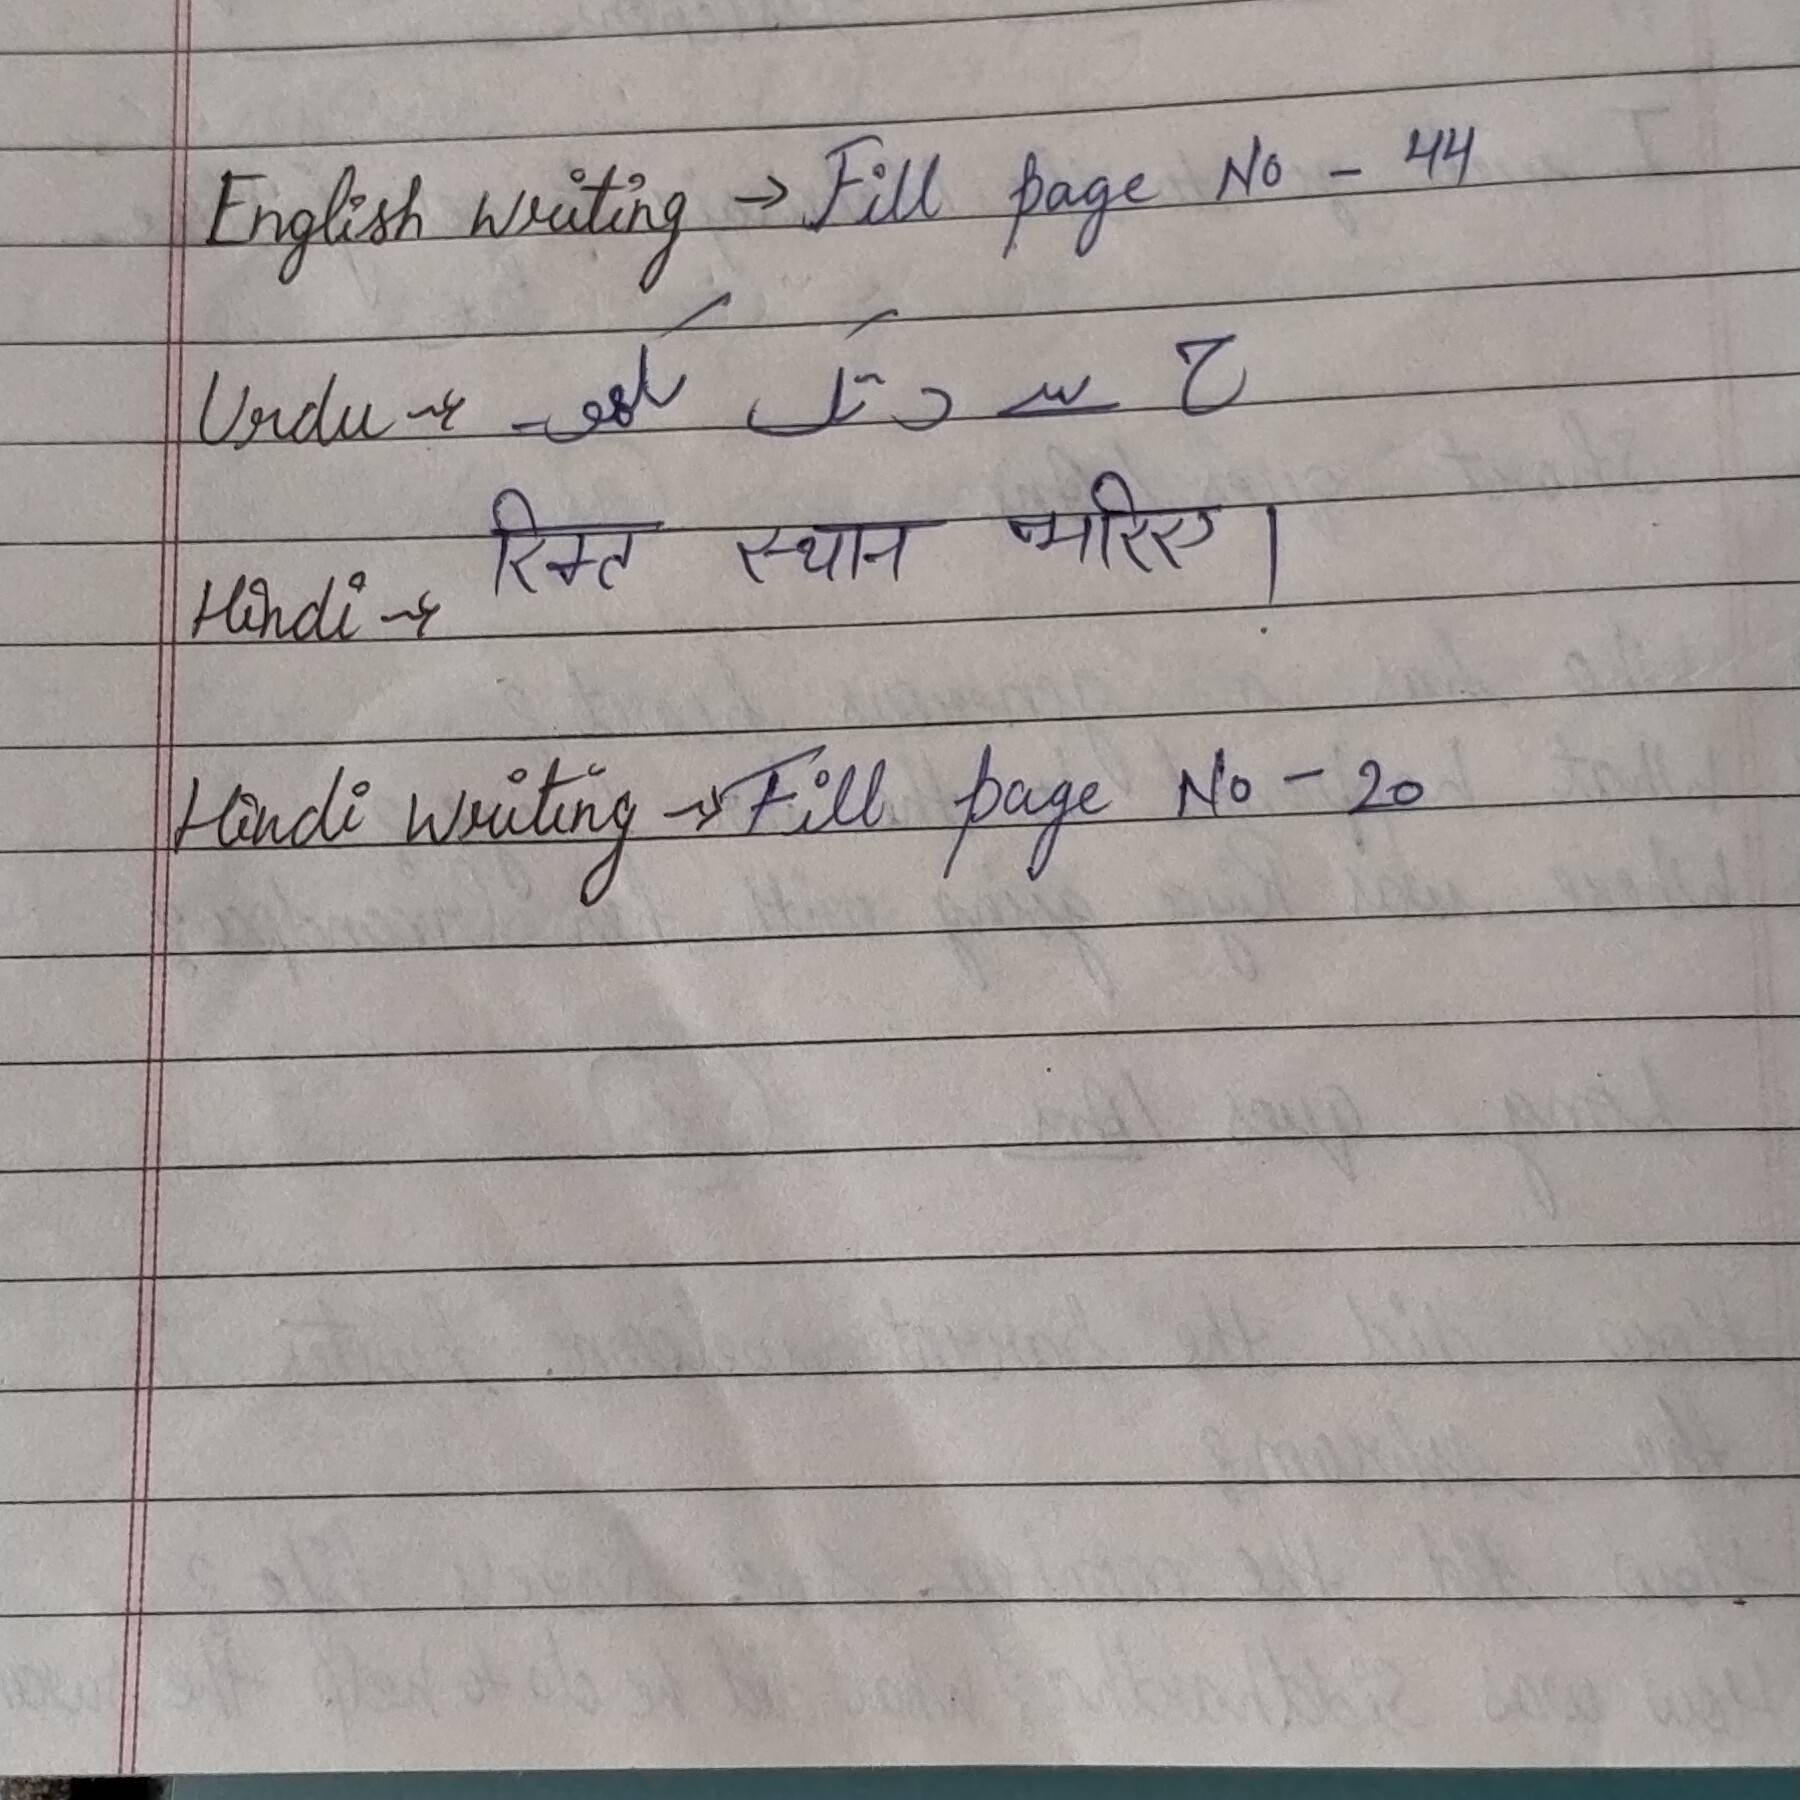 English Writing → Fill page No - 44
Urdu → ح سے د تک لکھو۔
Hindi → रिक्त स्थान भरिए।
Hindi Writing → Fill page No - 20